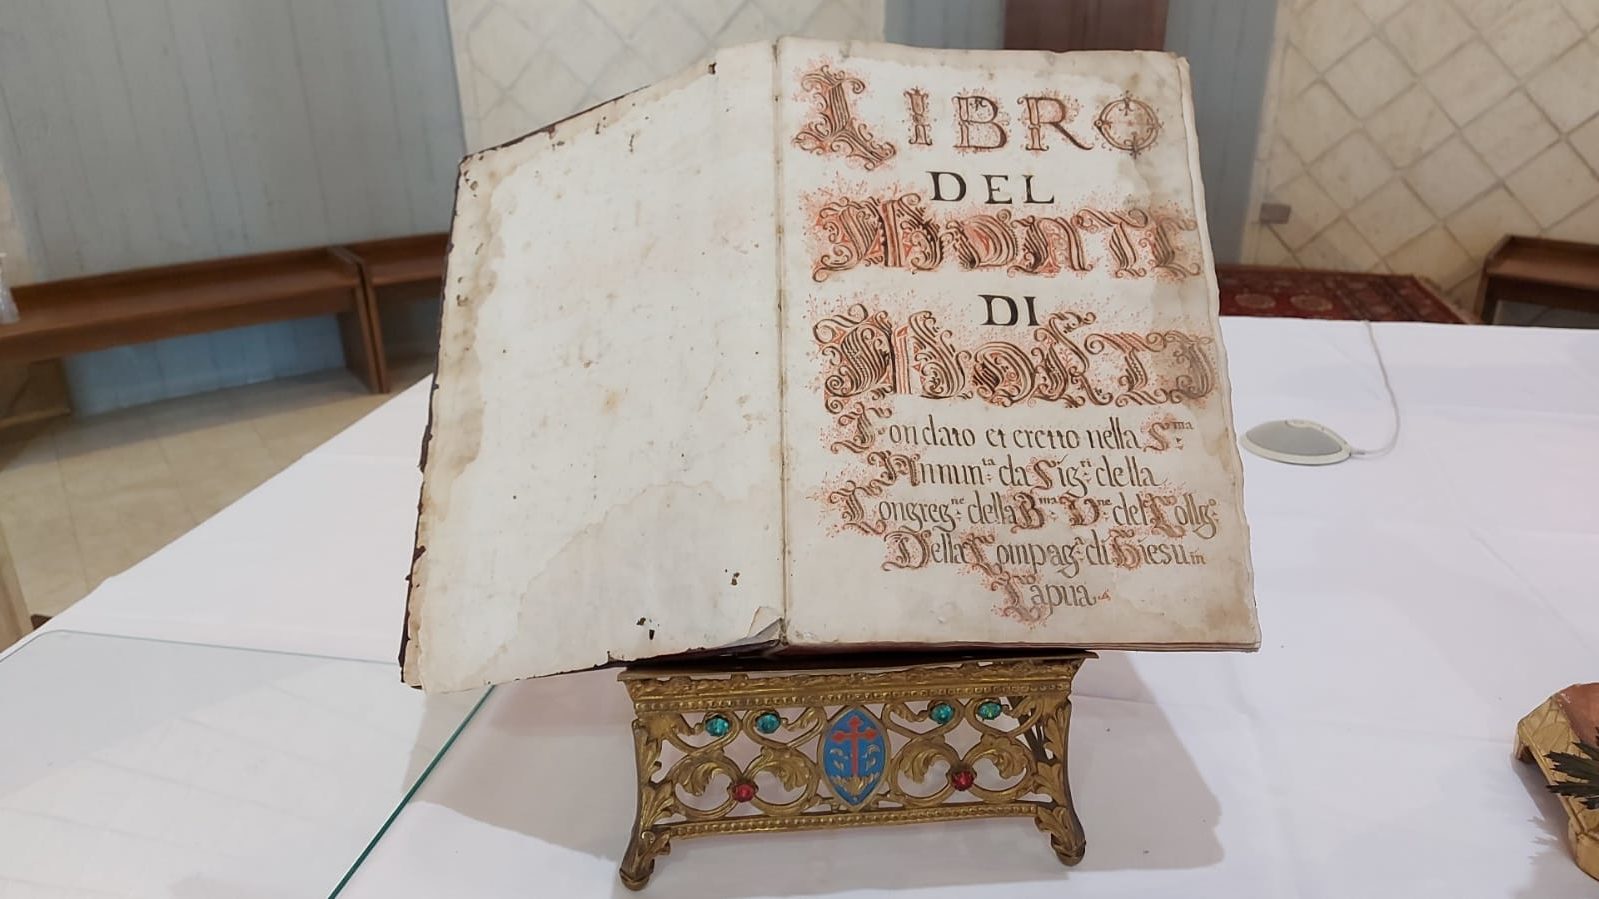 LIBRO
DEL
MONTE
DI
MORTI
Fondato et eretto nella S.ma
Annun.ta da Sig.ri della
Congreg.ne della B.ma V.ne del Collg.o
Della Compag.a di Giesu in
Capua.